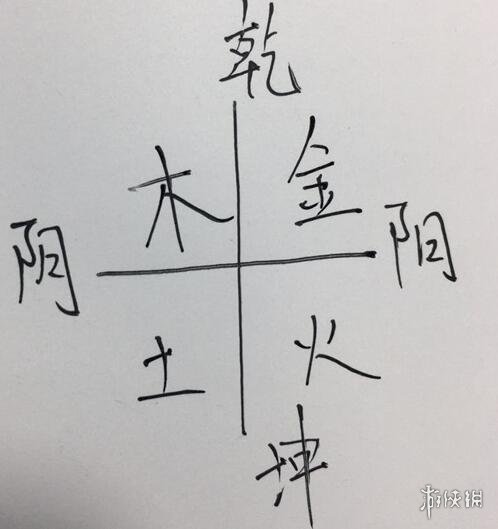 乾
木 金
阴 阳
土 火
坤
游侠网